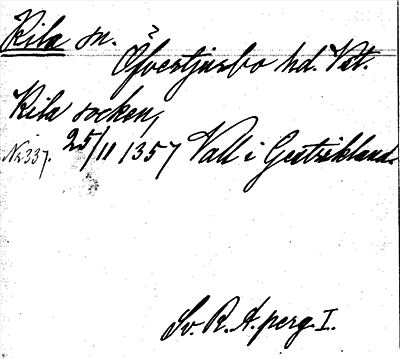 Kila sn.
Öfvertjurbo hd. Vst.
Kila socken,
No 337. 25/11 1357 Vall i Gestrikland.
Sv. R. A. perg. I.